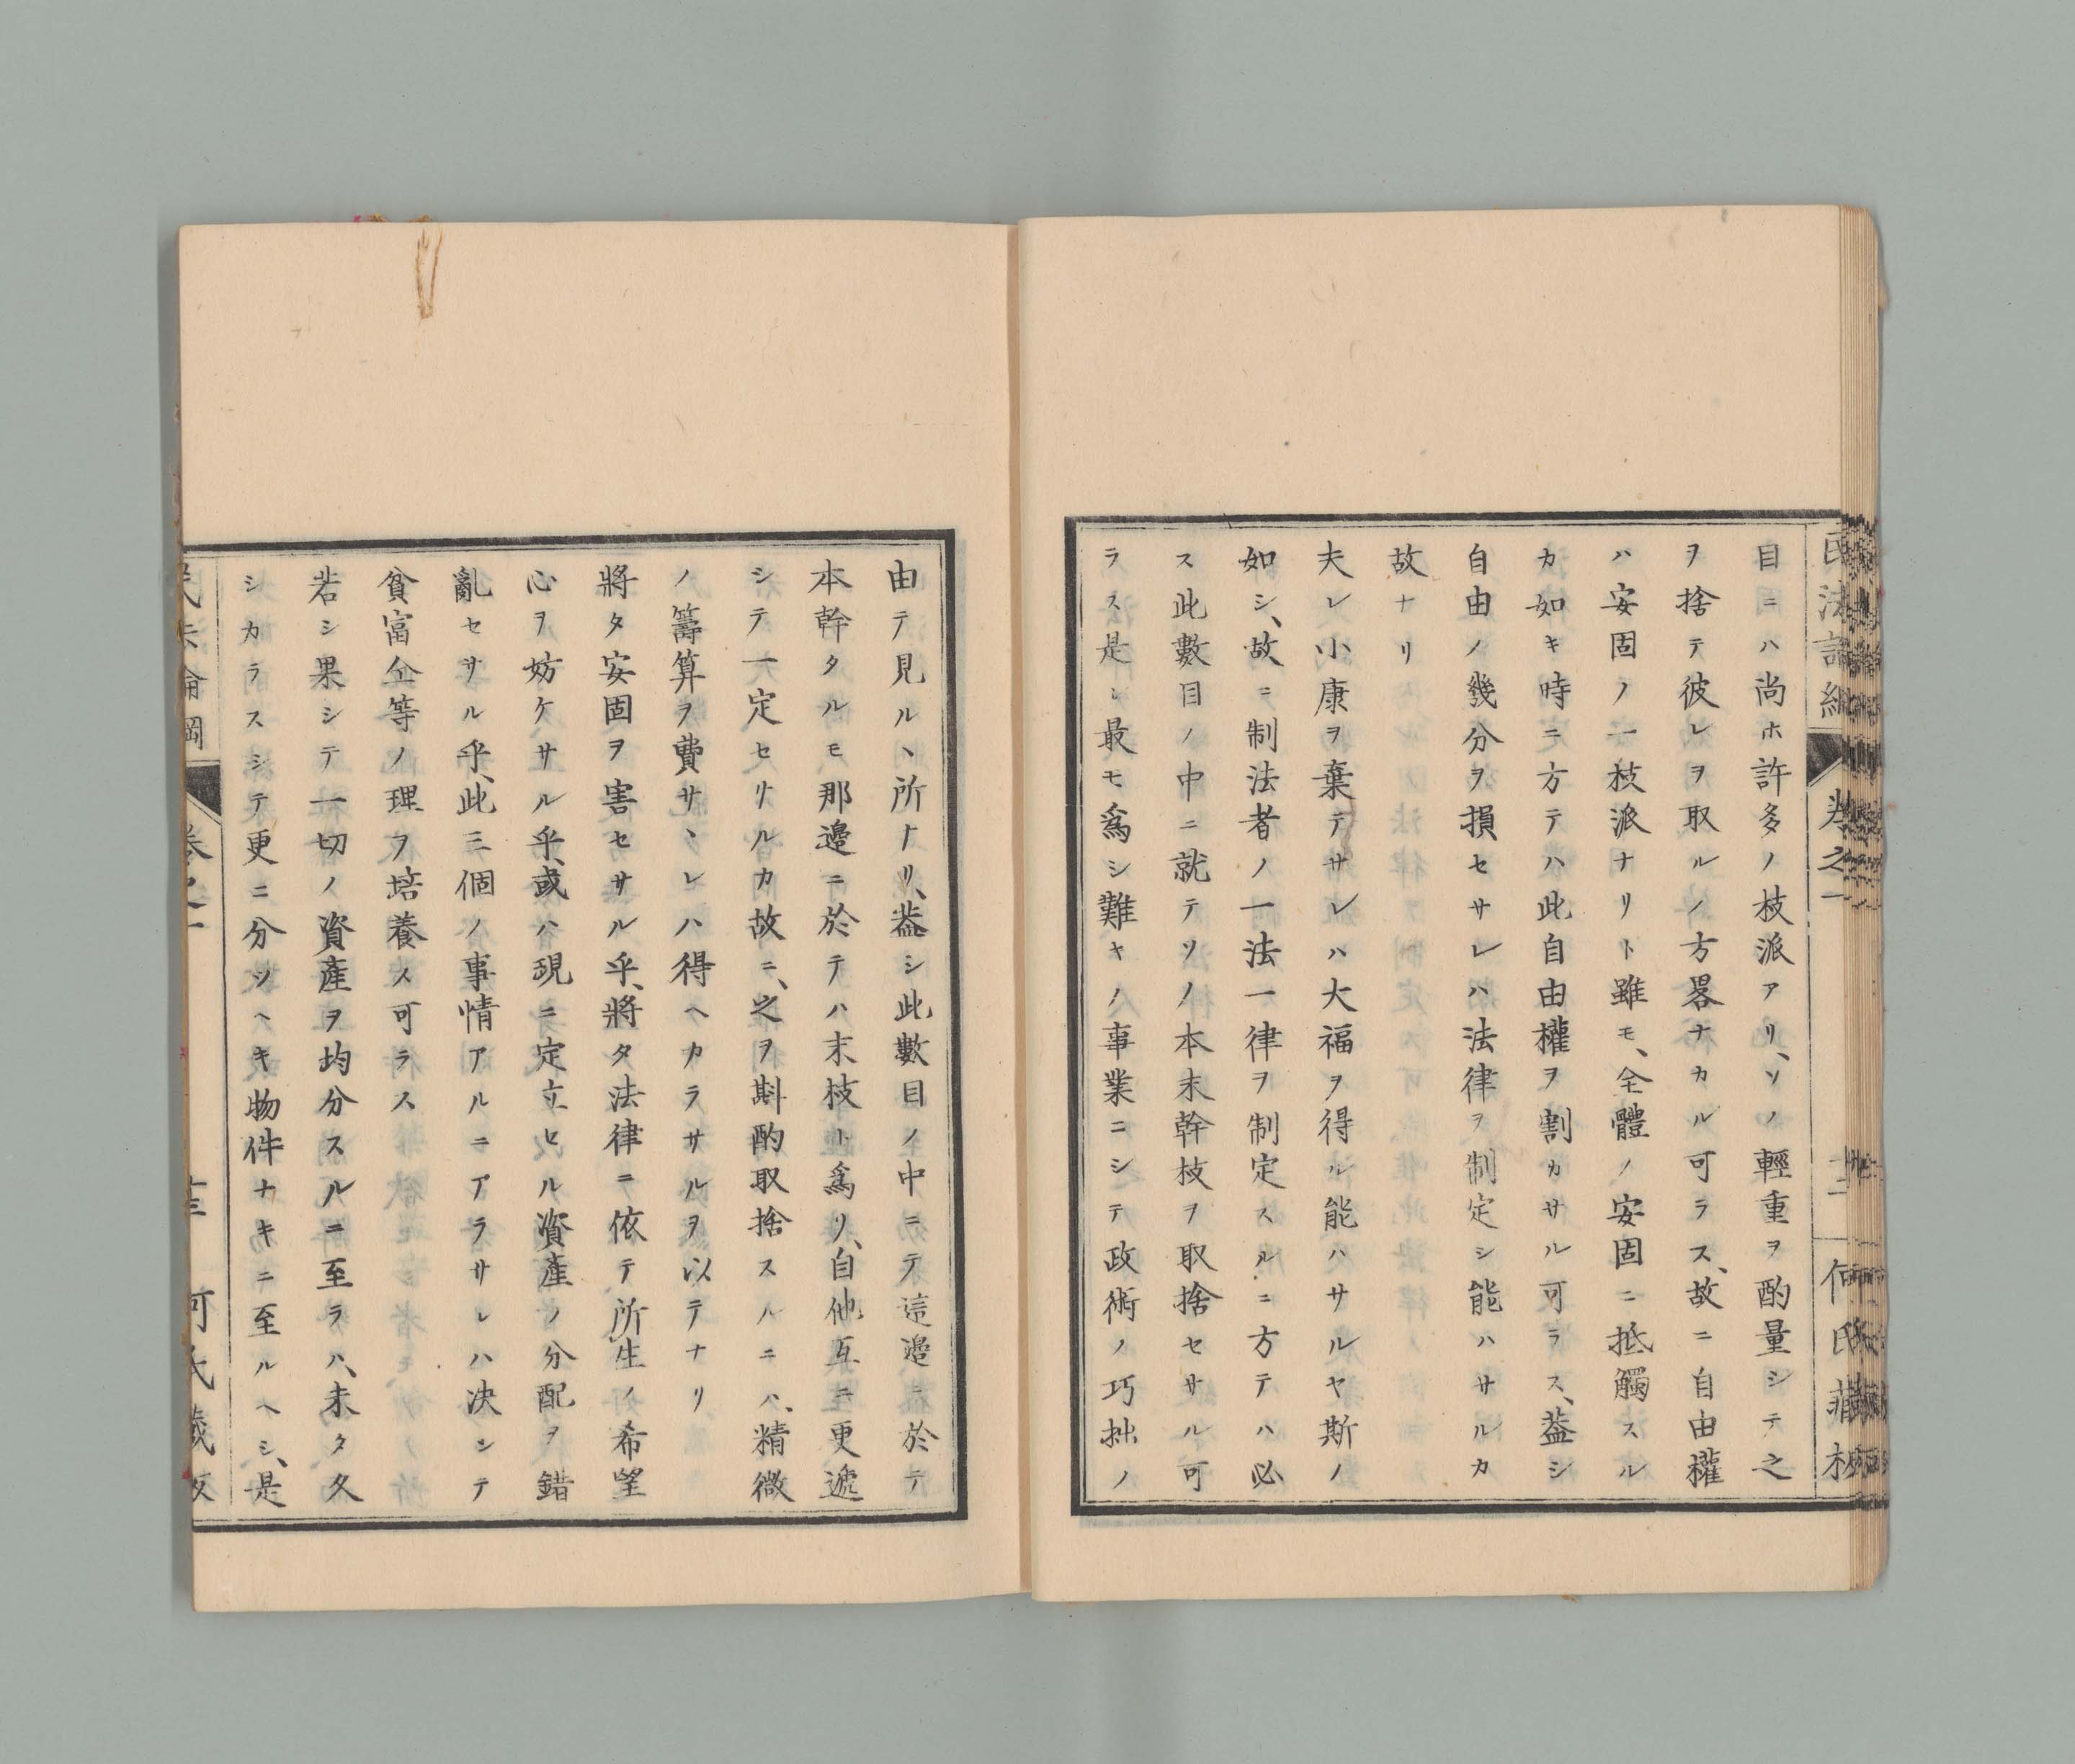 目ニハ尚ホ許多ノ枝派アリ、ソノ輕重ヲ酌量シテ之
ヲ捨テ彼レヲ取ルノ方畧ナカル可ラス、故ニ自由權
ハ安固ノ一枝派ナリト雖モ、全體ノ安固ニ抵觸スル
カ如キ時ニ方テハ此自由權ヲ割カサル可ラス、葢シ
自由ノ幾分ヲ損セサレハ法律ヲ制定シ能ハサルカ
故ナリ
夫レ小康ヲ棄テサレハ大福ヲ得ル能ハサルヤ斯ノ
如シ、故ニ制法者ノ一法一律ヲ制定スルニ方テハ必
ス此數目ノ中ニ就テソノ本末幹枝ヲ取捨セサル可
ラス是レ最モ爲シ難キノ事業ニシテ政術ノ巧拙ノ
由テ見ルヽ所ナリ、葢シ此數目ノ中ニテ這邉ニ於テ
本幹タルモ那邉ニ於テハ末枝ト爲リ、自他互ニ更遞
シテ一定セサルカ故ニ、之ヲ斟酌取捨スルニハ、精微
ノ籌算ヲ費サヽレハ得ヘカラサルヲ以テナリ
將タ安固ヲ害セサル乎、將タ法律ニ依テ所生ノ希望
心ヲ妨ケサル乎、或ハ現ニ定立セル資產ノ分配ヲ錯
亂セサル乎、此三個ノ事情アルニアラサレハ决シテ
貧富仝等ノ理ヲ培養ス可ラス
若シ果シテ一切ノ資產ヲ均分スルニ至ラハ、未タ久
シカラスシテ更ニ分ツヘキ物件ナキニ至ルヘシ、是